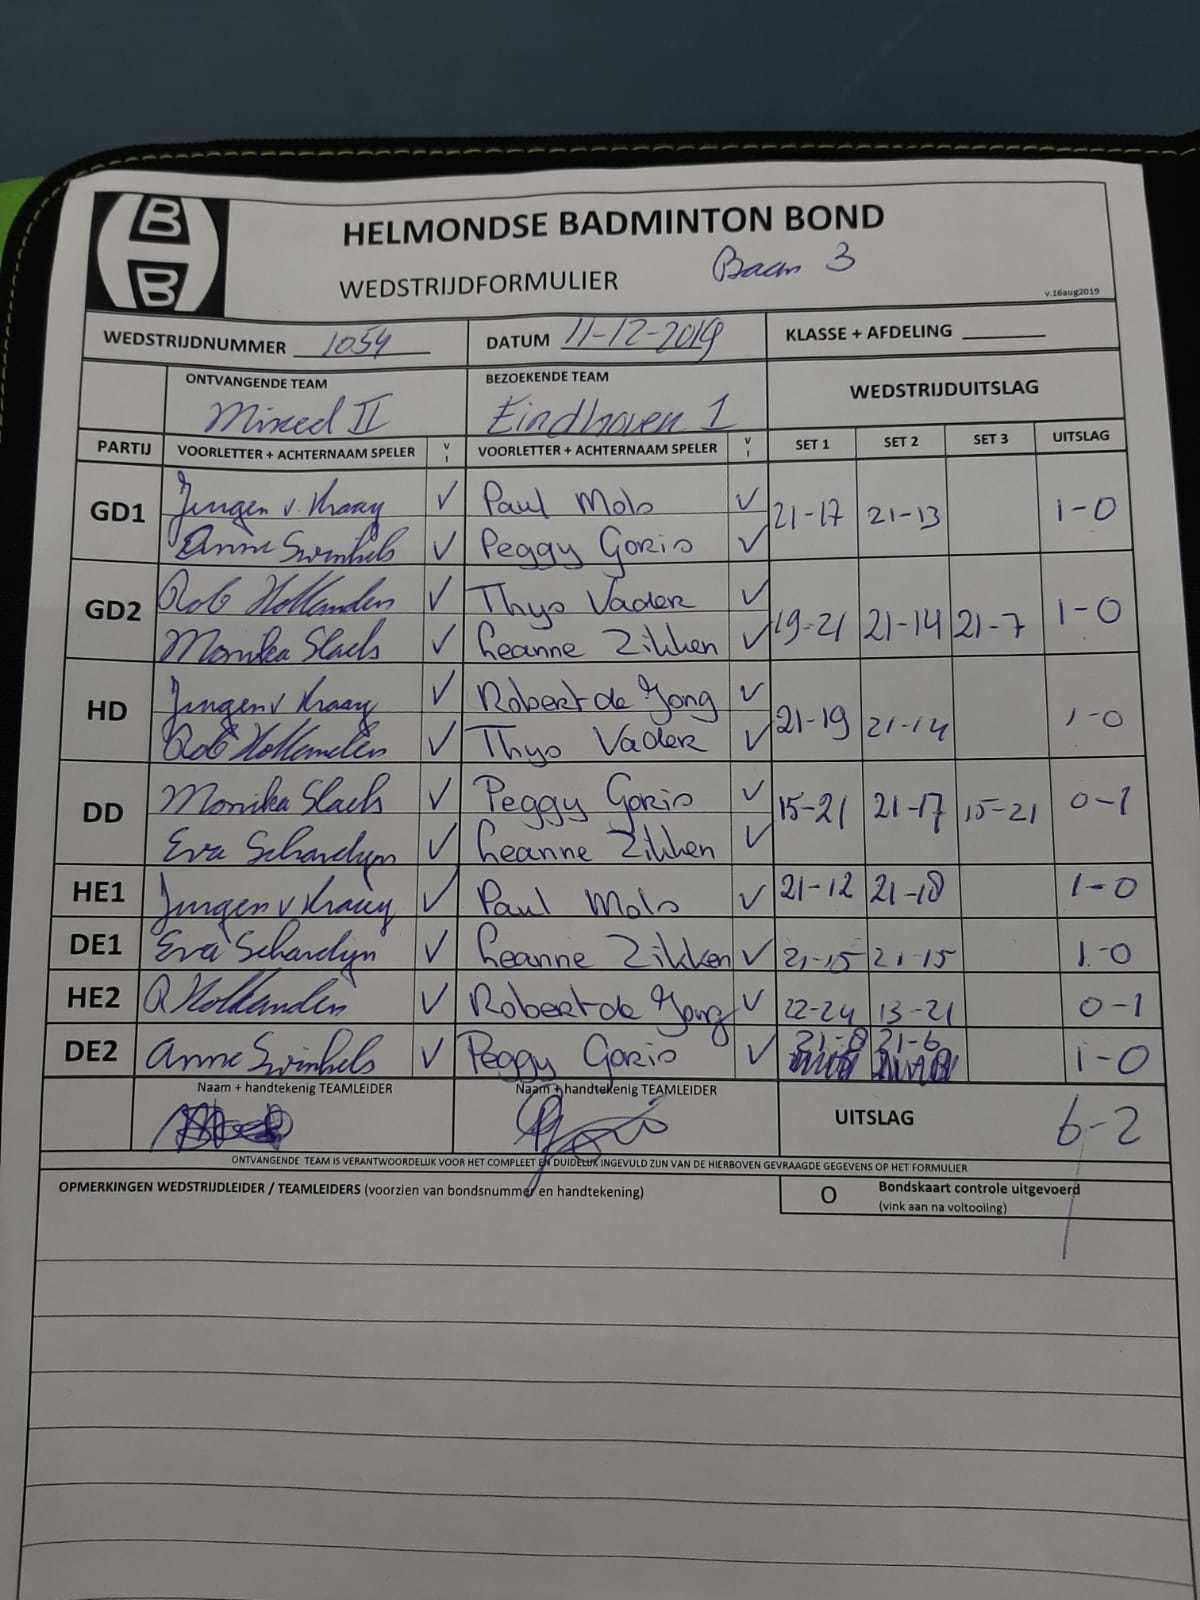 B
B
HELMONDSE BADMINTON BOND
WEDSTRIJDFORMULIER Baan 3
v.16aug2019
WEDSTRIJDNUMMER 1054 DATUM 11-12-2019 KLASSE + AFDELING
ONTVANGENDE TEAM BEZOEKENDE TEAM WEDSTRIJDUITSLAG
Mixed II Eindhoven 1
PARTIJ VOORLETTER + ACHTERNAAM SPELER V I VOORLETTER + ACHTERNAAM SPELER V I SET 1 SET 2 SET 3 UITSLAG
GD1 Jurgen v. Kraay V Paul Mols V 21-17 21-13 1-0
Anne Swinkels V Peggy Goris V
GD2 Rob Hollanders V Thys Vader V 19-21 21-14 21-7 1-0
Monika Slaets V Leanne Zikken V
HD Jurgen v Kraay V Robert de Jong V 21-19 21-14 1-0
Rob Hollanders V Thys Vader V
DD Monika Slaets V Peggy Goris V 15-21 21-17 15-21 0-1
Eva Schardijn V Leanne Zikken V
HE1 Jurgen v Kraay V Paul Mols V 21-12 21-18 1-0
DE1 Eva Schardijn V Leanne Zikken V 21-15 21-15 1-0
HE2 R Hollanders V Robert de Jong V 22-24 13-21 0-1
DE2 Anne Swinkels V Peggy Goris V 21-8 21-6 1-0
Naam + handtekenig TEAMLEIDER Naam + handtekenig TEAMLEIDER UITSLAG 6-2
ONTVANGENDE TEAM IS VERANTWOORDELIJK VOOR HET COMPLEET EN DUIDELIJK INGEVULD ZIJN VAN DE HIERBOVEN GEVRAAGDE GEGEVENS OP HET FORMULIER
OPMERKINGEN WEDSTRIJDLEIDER / TEAMLEIDERS (voorzien van bondsnummer en handtekening) O Bondskaart controle uitgevoerd
(vink aan na voltooiing)